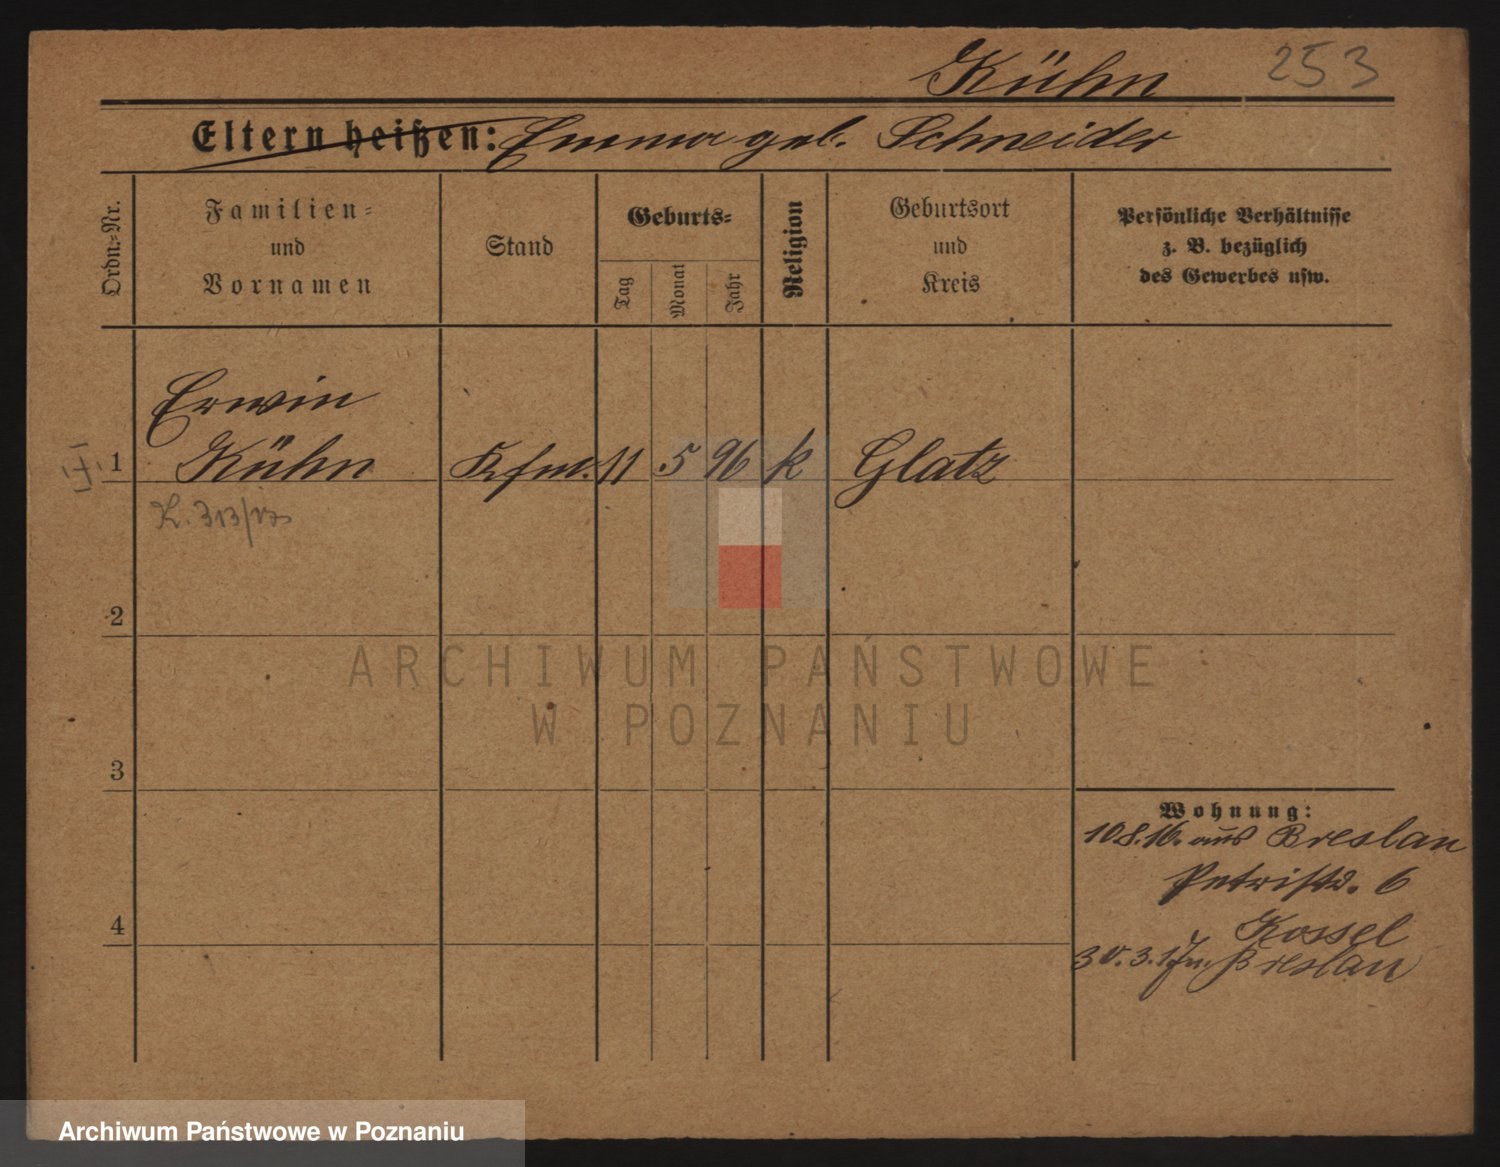 Kühn 253
Eltern heißen: Emma geb. Schneider
Ordn.-Nr.
Familien-
und
Vornamen
Stand
Geburts-
Tag
Monat
Jahr
Religion
Geburtsort
und
Kreis
Persönliche Verhältnisse
z. B. bezüglich
des Gewerbes usw.
Erwin
1 Kühn Kfm. 11 5 96 k Glatz
K. 313/17
2
ARCHIWUM PAŃSTWOWE
W POZNANIU
3
Wohnung:
10.8.16. aus Breslau
Petristr. 6
4
Kossel
30.3.17 n. Breslau
Archiwum Państwowe w Poznaniu